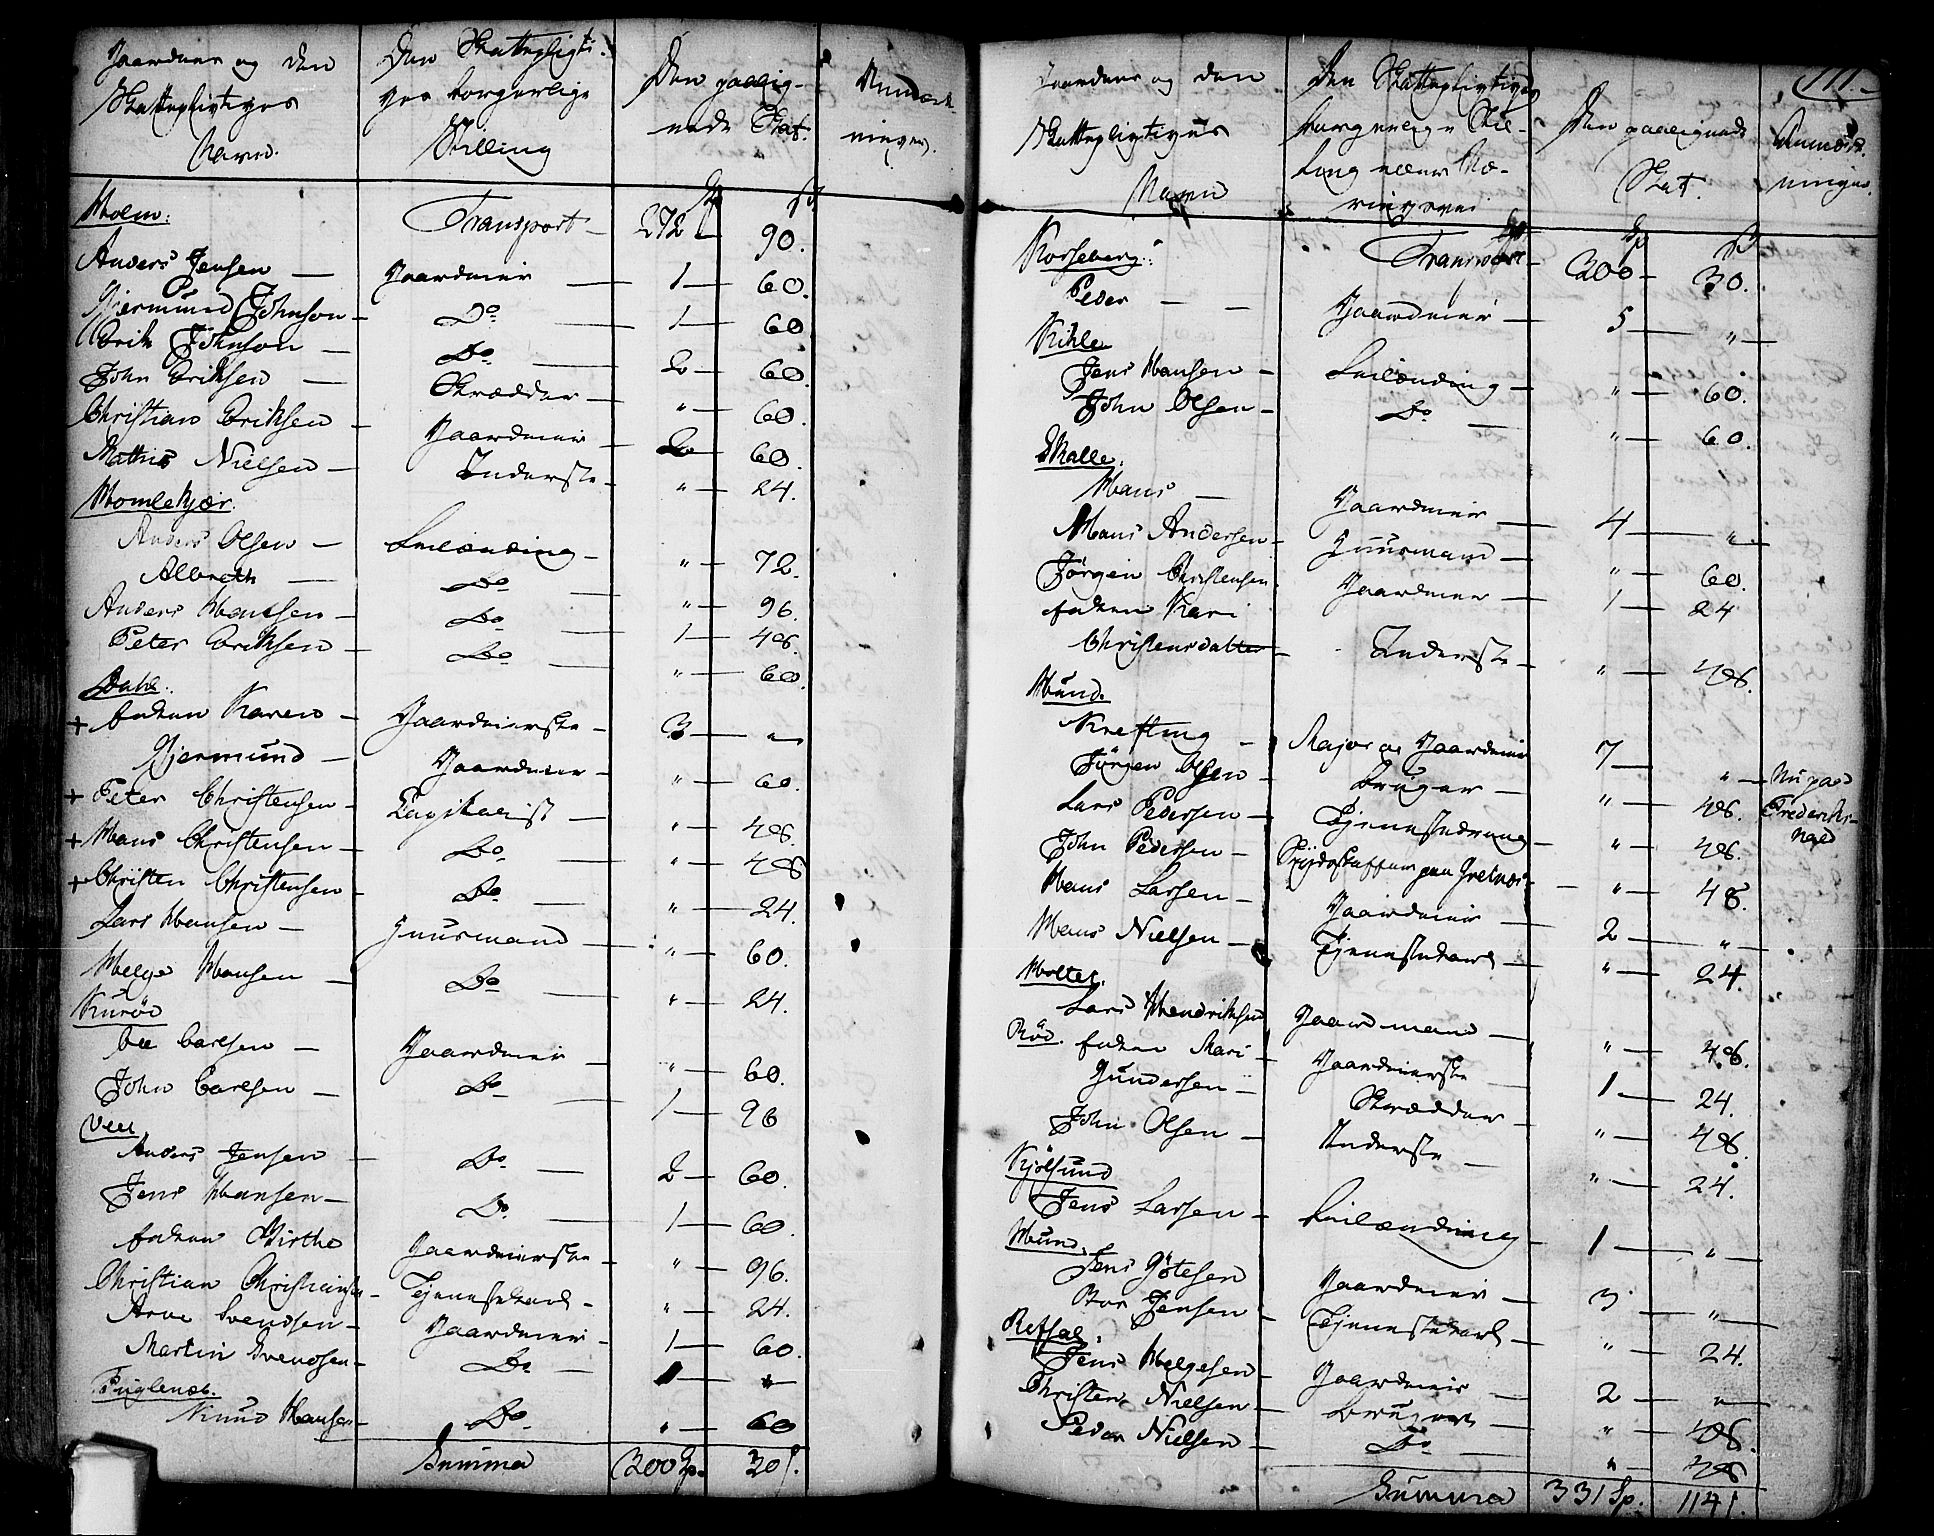 Gaardens og den Skattepligtiges Navn. | Den Skattepligtiges borgerlige Stilling | Den paalignede Skat. | Anmærkninger.
Holm: Transport - 272 Sp 90 ß.
Anders Jensen — Gaardeier — 1 — 60.
Gjermund Johnson — Do — 1 — 60
Erik Johnson — Do — 2 — 60.
John Eriksen — Skrædder — " — 60.
Christian Eriksen — Gaardeier — 2 — 60.
Mathis Nielsen — Inderste — " — 24.
Homlekjær.
Anders Olsen — Leilænding — " — 72.
Albreth — Do — " — 96.
Anders Hansen — Do — 1 — 48.
Peter Eriksen — Do — " — 60.
Dahl.
+ Enken Karen — Gaardeierske — 3 — "
Gjermund — Gaardeier — " — 60.
+ Peter Christensen — Capitalist — " — 48.
+ Hans Christensen — Do — " — 48
+ Christen Christensen — Do — " — 24.
Lars Hansen — Huusmand — " — 60.
Helge Hansen — Do — " — 24.
Kurød
Ole Carlsen — Gaardeier — " — 60.
John Carlsen — Do — 1 — 96
Veel
Anders Jensen — Do — 2 — 60.
Jens Hansen — Do — 1 — 60.
Enken Birthe Gaardeierske — " — 96.
Christian Christiansen — Tjenestekarl — " — 24.
Arve Svendsen — Gaardeier — 1 — 60.
Martin Svendsen — Do — 1 — "
Fuglenæb.
Knud Hansen — Do — " — 60
Summa 300 Sp. 30 ß.
111.
Gaardens og den Skattepligtiges Navn | Den Skattepligtiges borgerlige Stilling eller Næringsvei | Den paalignede Skat. | Anmærkninger.
Korseberg: Transport — 300 Sp — 30 ß.
Peder — Gaardeier — 5 — "
Kihle
Jens Hansen — Leilænding — " — 60.
John Olsen — Do — " — 60.
Skalle.
Hans — Gaardeier — 4 — "
Hans Andersen — Huusmand — " — 60.
Jørgen Christensen Gaardeier — 1 — 24
Enken Kari
Christensdatter — Inderste — " — 48.
Hund.
Krefting — Major og Gaardeier 7 — " — Nu paa Frederikshald
Jørgen Olsen — Bruger — " — 48.
Lars Pedersen — Tjenestedreng " — 48.
John Pedersen — " — 48.
Hans Larsen — Gaardeier — 2 — "
Hans Nielsen — Tjenestekarl — " — 24.
Holtet.
Lars Hendriksen Gaardmand — " — 48.
Röd. Enken Mari — Gaardeierske — 1 — 24.
Gundersen — Skrædder — " — 48.
John Olsen — Inderste — " — 24.
Kjølsund
Jens Larsen — Leilænding — 1 — "
Hund.
Jens Götesen Gaardeier — 3 — "
Jensen — Tjenestekarl — " — 24.
Refsal.
Jens Helgesen — Gaardeier — 2 — "
Christen Nielsen — Bruger — " — 48.
Peder Nielsen — Do — " — 48
Summa 331 Sp. 114 ß.